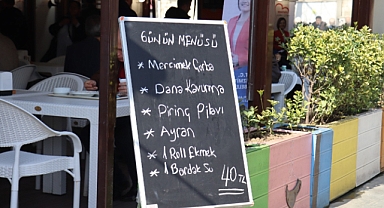 GÜNÜN MENÜSÜ
* Mercimek Çorba
* Dana Kavurma
* Pirinç Pilavı
* Ayran
* 1 Roll Ekmek
* 1 Bardak Su
40 TL